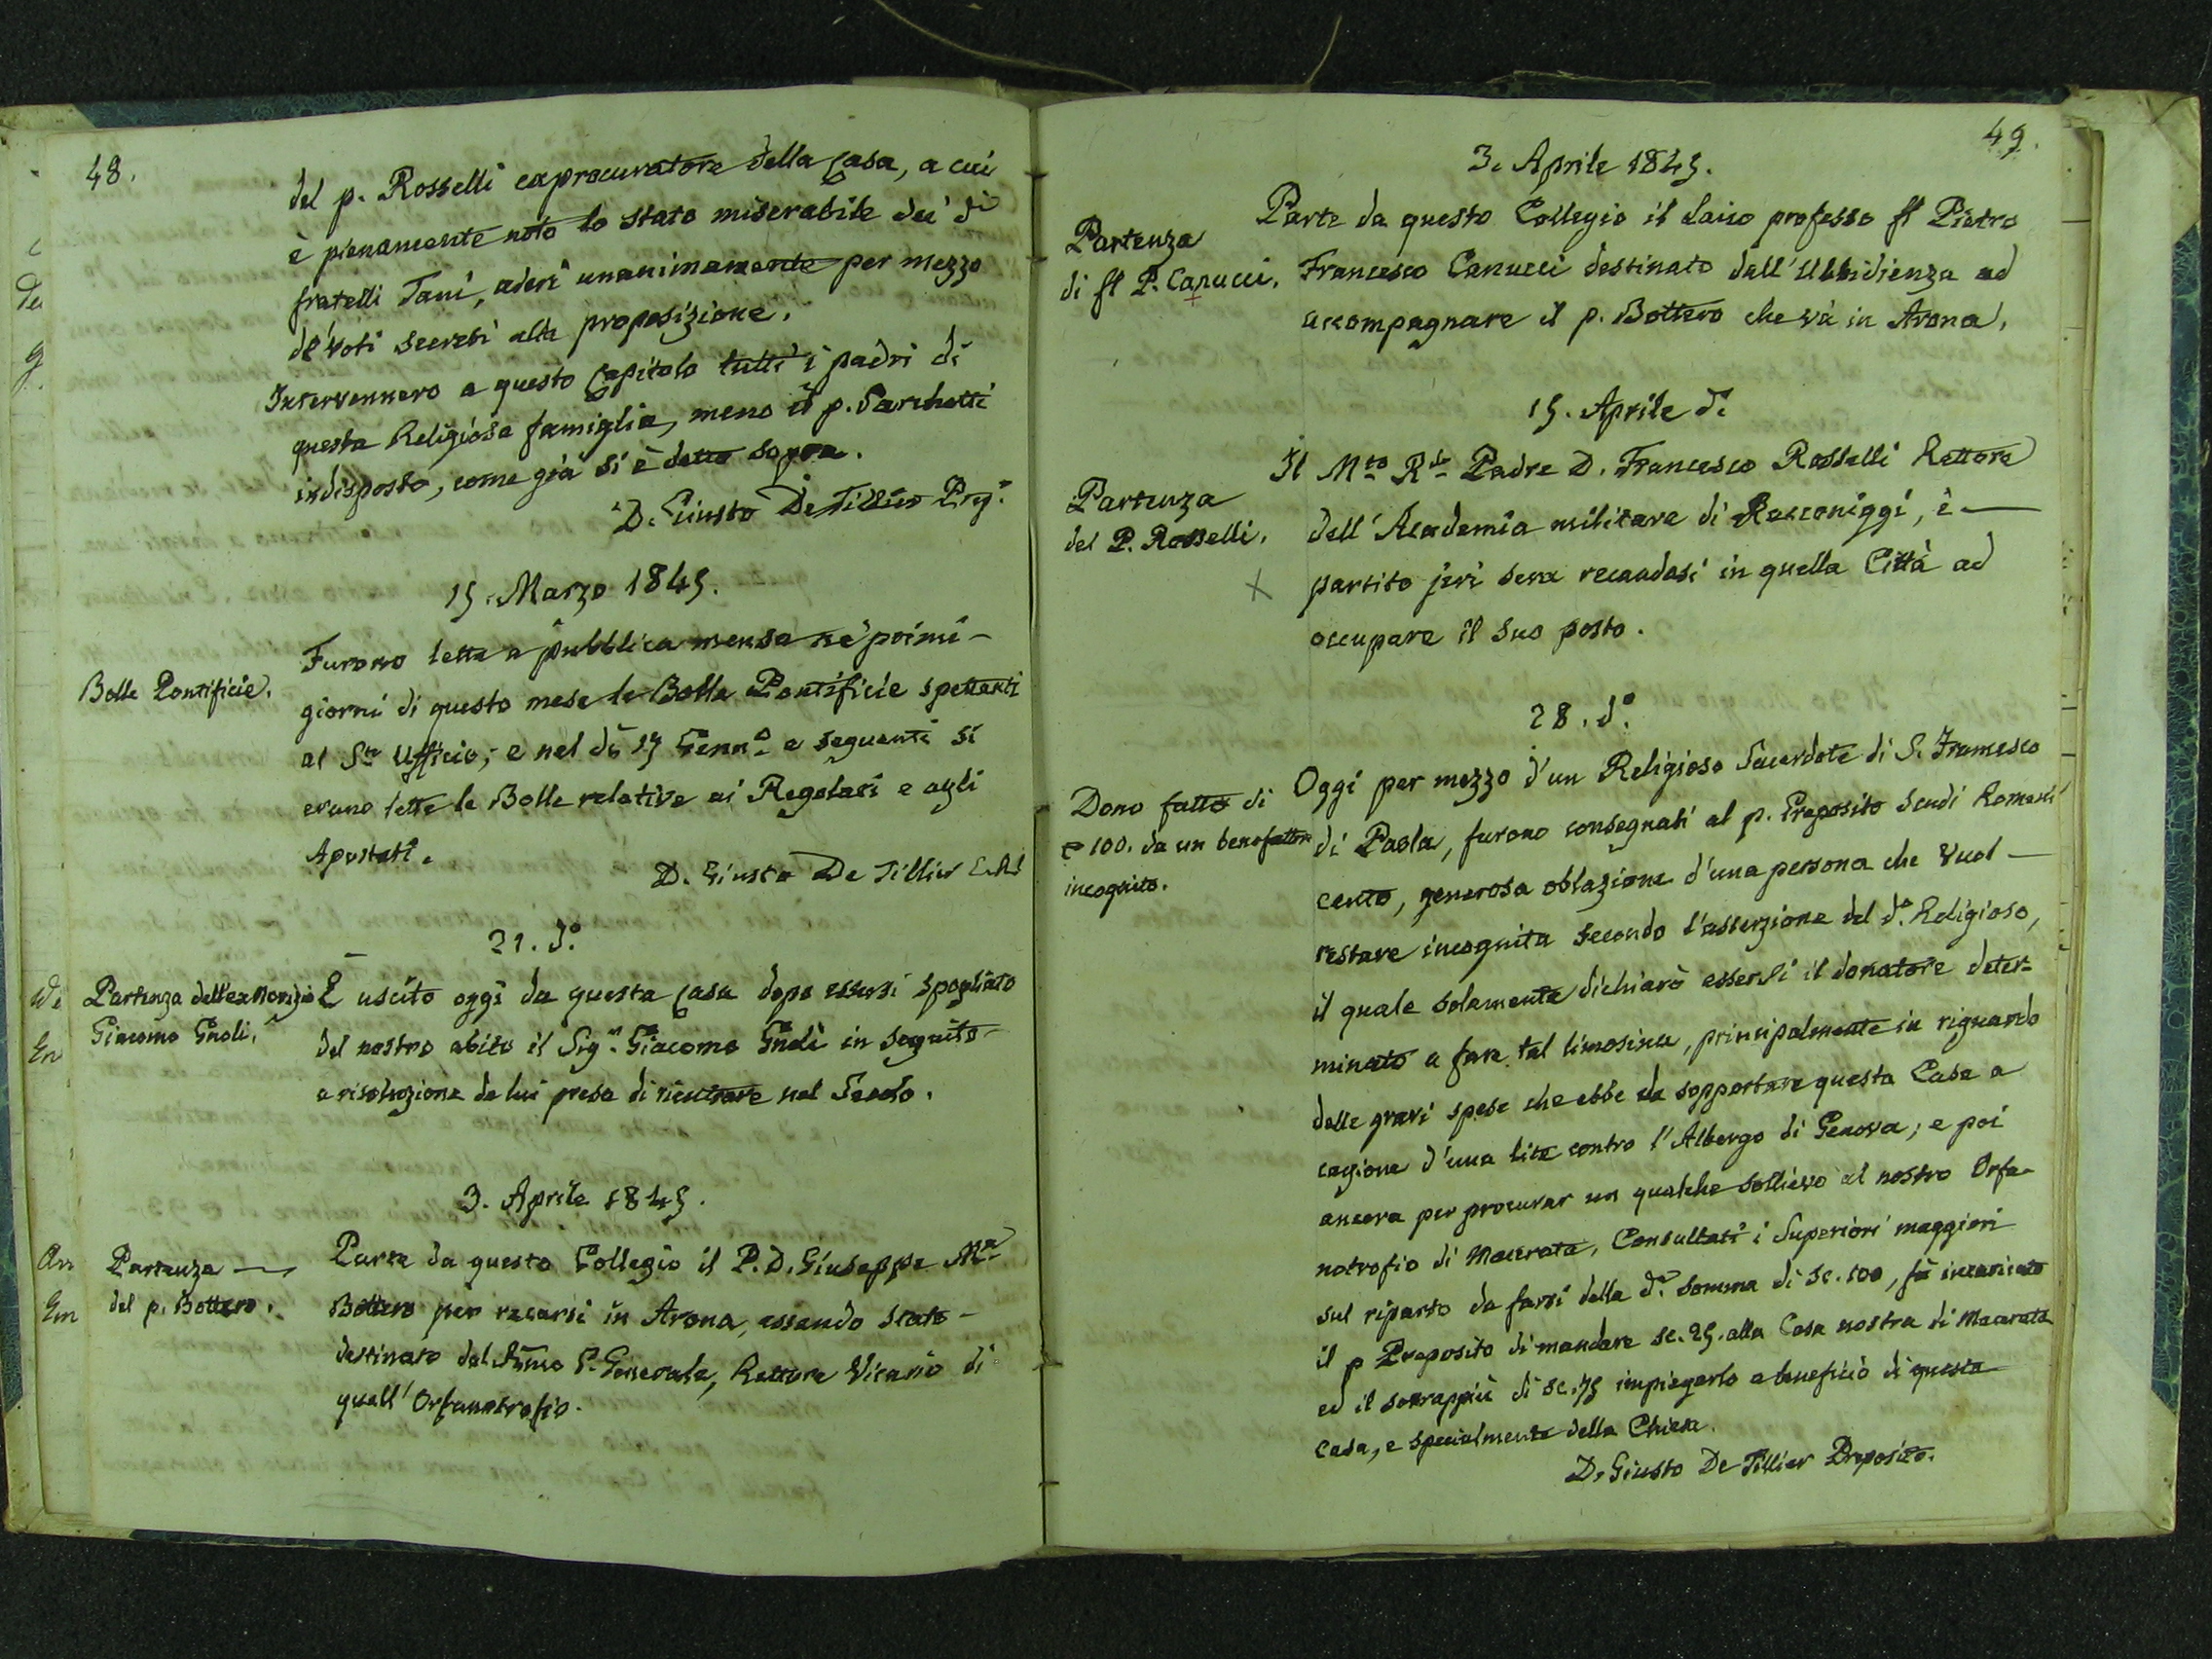 48.
del p. Rosselli exprocuratore della Casa, a cui
è pienamente noto lo stato miserabile dei di
fratelli Tani, aderì unanimamente per mezzo
de' voti secreti alla proposizione.
Intervennero a questo Capitolo tutti i padri di
questa Religiosa famiglia, meno il p. Sarchetti
indisposto, come già si è detto sopra.
D. Giusto De Tillier
15. Marzo 1845.
Bolle Pontificie.
Furono lette a pubblica mensa ne' primi
giorni di questo mese le Bolle Pontificie spettanti
al Sto Ufficio; e nel dì 17 Gennº e seguenti si
erano lette le Bolle relative ai Regolari e agli
Apostati.
D. Giusto De Tillier
21. dº
Partenza dell'ex Novizio
Giacomo Gnoli.
È uscito oggi da questa Casa dopo essersi spogliato
del nostro abito il Sigr Giacomo Gnoli in seguito
a risoluzione da lui presa di rientrare nel Secolo.
3. Aprile 1845.
Partenza
del p. Bottero.
Parte da questo Collegio il P. D. Giuseppe Ma
Bottero per recarsi in Arona, essendo stato
destinato dal Rmo P. Generale, Rettore Vicario di
quell'Orfanotrofio.
49.
3. Aprile 1845.
Partenza
di fl P. Canucci.
Parte da questo Collegio il Laico professo fl Pietro
Francesco Canucci destinato dall'Ubbidienza ad
accompagnare il p. Bottero che và in Arona.
15. Aprile dº
Partenza
del P. Rosselli.
Il Mto Rdo Padre D. Francesco Rosselli Rettore
dell'Academia militare di Racconiggi, è
partito jeri sera recandosi in quella Città ad
occupare il suo posto.
28. dº
Dono fatto di
100. da un benefattore
incognito.
Oggi per mezzo d'un Religioso Sacerdote di S. Francesco
di Paola, furono consegnati al p. Preposito scudi Romani
cento, generosa oblazione d'una persona che vuol
restare incognita secondo l'asserzione del dº Religioso,
il quale solamente dichiarò essersi il donatore deter-
minato a fare tal limosina, principalmente in riguardo
delle gravi spese che ebbe da sopportare questa Casa a
cagione d'una lite contro l'Albergo di Genova; e poi
ancora per procurar un qualche sollievo al nostro Orfa-
notrofio di Macerata. Consultati i Superiori maggiori
sul riparto da farsi della da somma di sc. 100, fù incaricato
il p Preposito di mandare sc. 25. alla Casa nostra di Macerata
ed il sovrappiù di sc. 75 impiegarlo a beneficio di questa
Casa, e specialmente della Chiesa.
D. Giusto De Tillier Preposito.